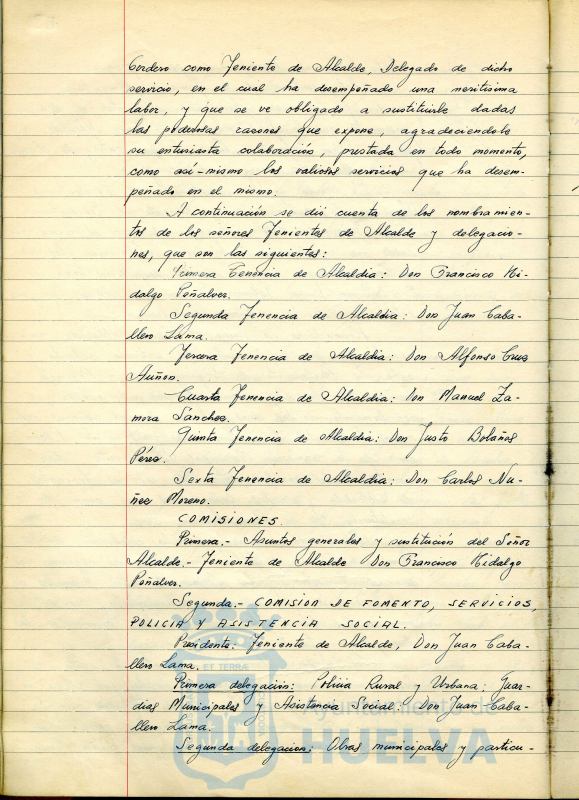 Cordero como Teniente de Alcalde, Delegado de dicho
servicio, en el cual ha desempeñado una meritísima
labor, y que se ve obligado a sustituirle dadas
las poderosas razones que expone, agradeciendole
su entusiasta colaboración, prestada en todo momento,
como asi-mismo los valiosos servicios que ha desem-
peñado en el mismo.
A continuación se dió cuenta de los nombramien-
tos de los señores Tenientes de Alcalde y delegacio-
nes, que son las siguientes:
Primera Tenencia de Alcaldia: Don Francisco Hi-
dalgo Peñalver.
Segunda Tenencia de Alcaldia: Don Juan Caba-
llero Lama.
Tercera Tenencia de Alcaldia: Don Alfonso Cruz
Auñon.
Cuarta Tenencia de Alcaldia: Don Manuel Za-
mora Sánchez.
Quinta Tenencia de Alcaldia: Don Justo Bolaños
Pérez.
Sexta Tenencia de Alcaldia: Don Carlos Nu-
ñez Moreno.
COMISIONES.
Primera.- Asuntos generales y sustitución del Señor
Alcalde.- Teniente de Alcalde Don Francisco Hidalgo
Peñalver.
Segunda.- COMISION DE FOMENTO, SERVICIOS,
POLICIA Y ASISTENCIA SOCIAL.
Presidente: Teniente de Alcalde, Don Juan Caba-
llero Lama.
Primera delegación: Policia Rural y Urbana; Guar-
dias Municipales y Asistencia Social: Don Juan Caba-
llero Lama.
Segunda delegacion: Obras municipales y particu-
ET TERRÆ
Ayuntamiento de
HUELVA